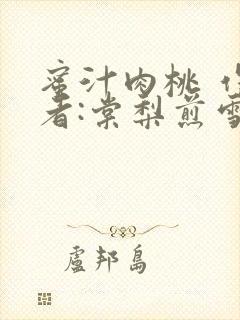 蜜汁肉桃
者:棠梨煎
盧邦島